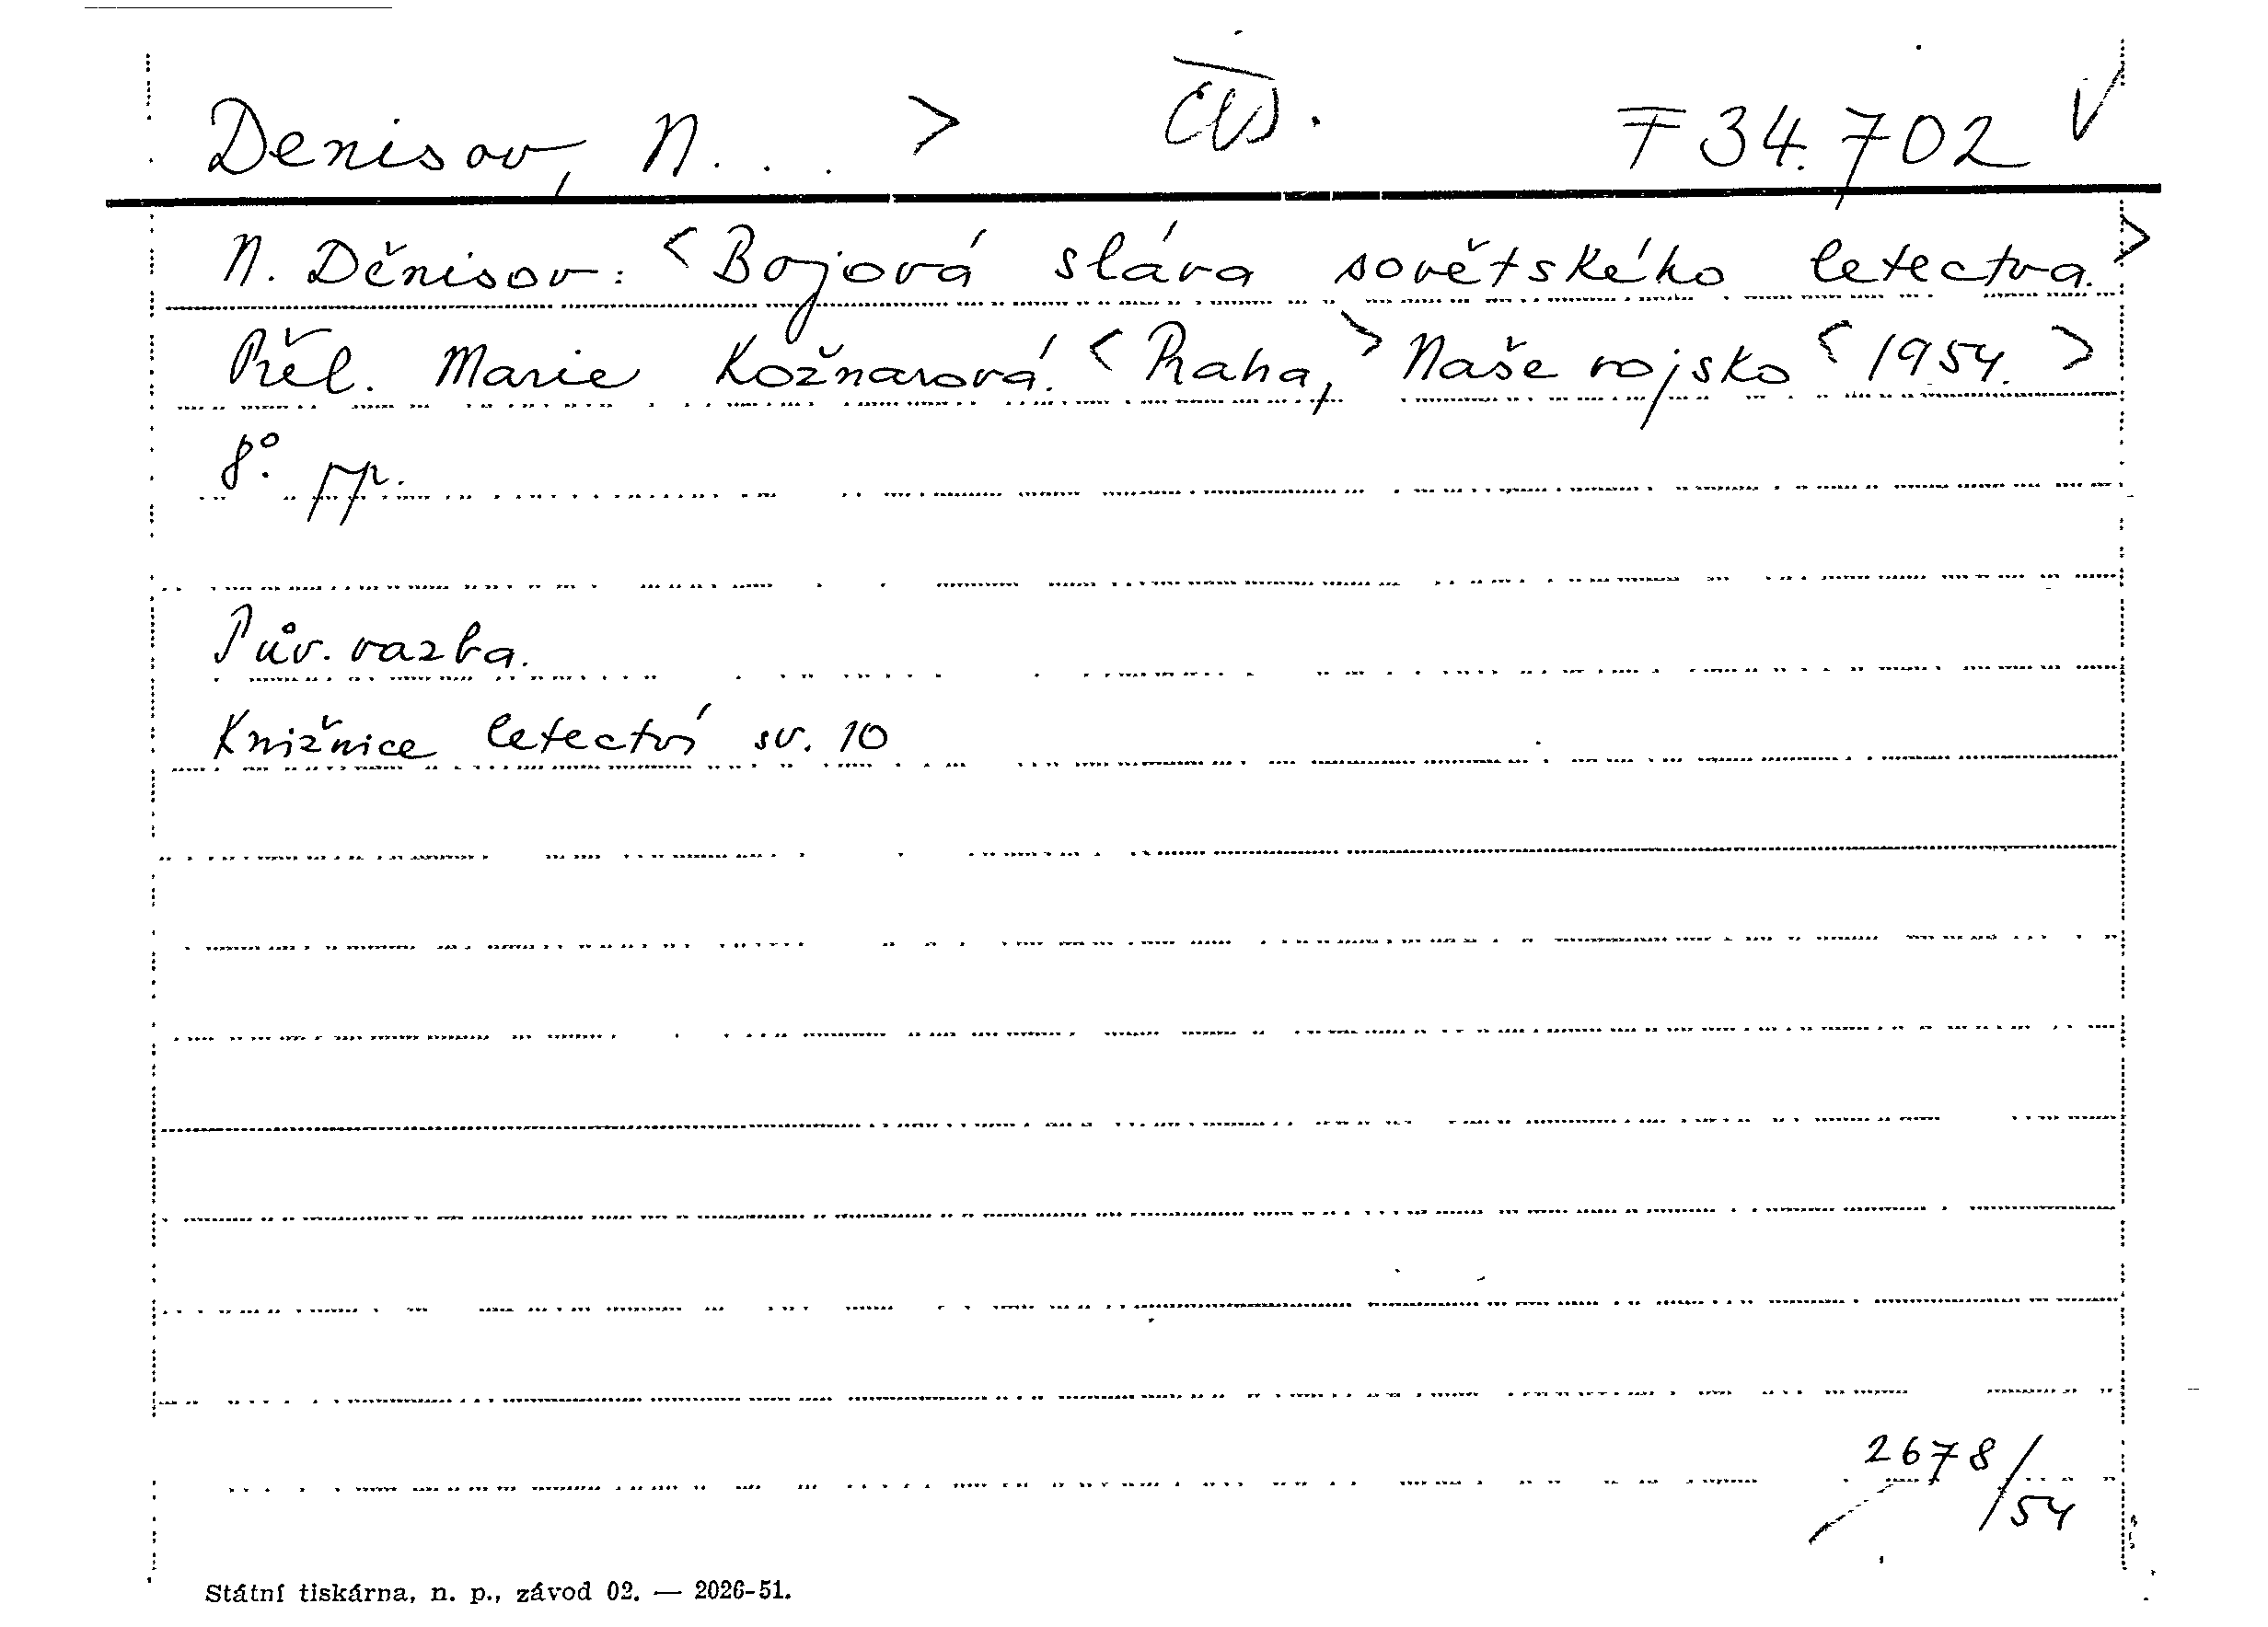 Denisov, N. . . > F 34.702 V
N. Děnisov: <Bojová sláva sovětského letectva.>
Přel. Marie Kožnarová. <Praha,> Naše vojsko <1954.>
8°. pp.
Pův. vazba.
Knižnice letectví sv. 10
2678/54
Státní tiskárna, n. p., závod 02. — 2026-51.